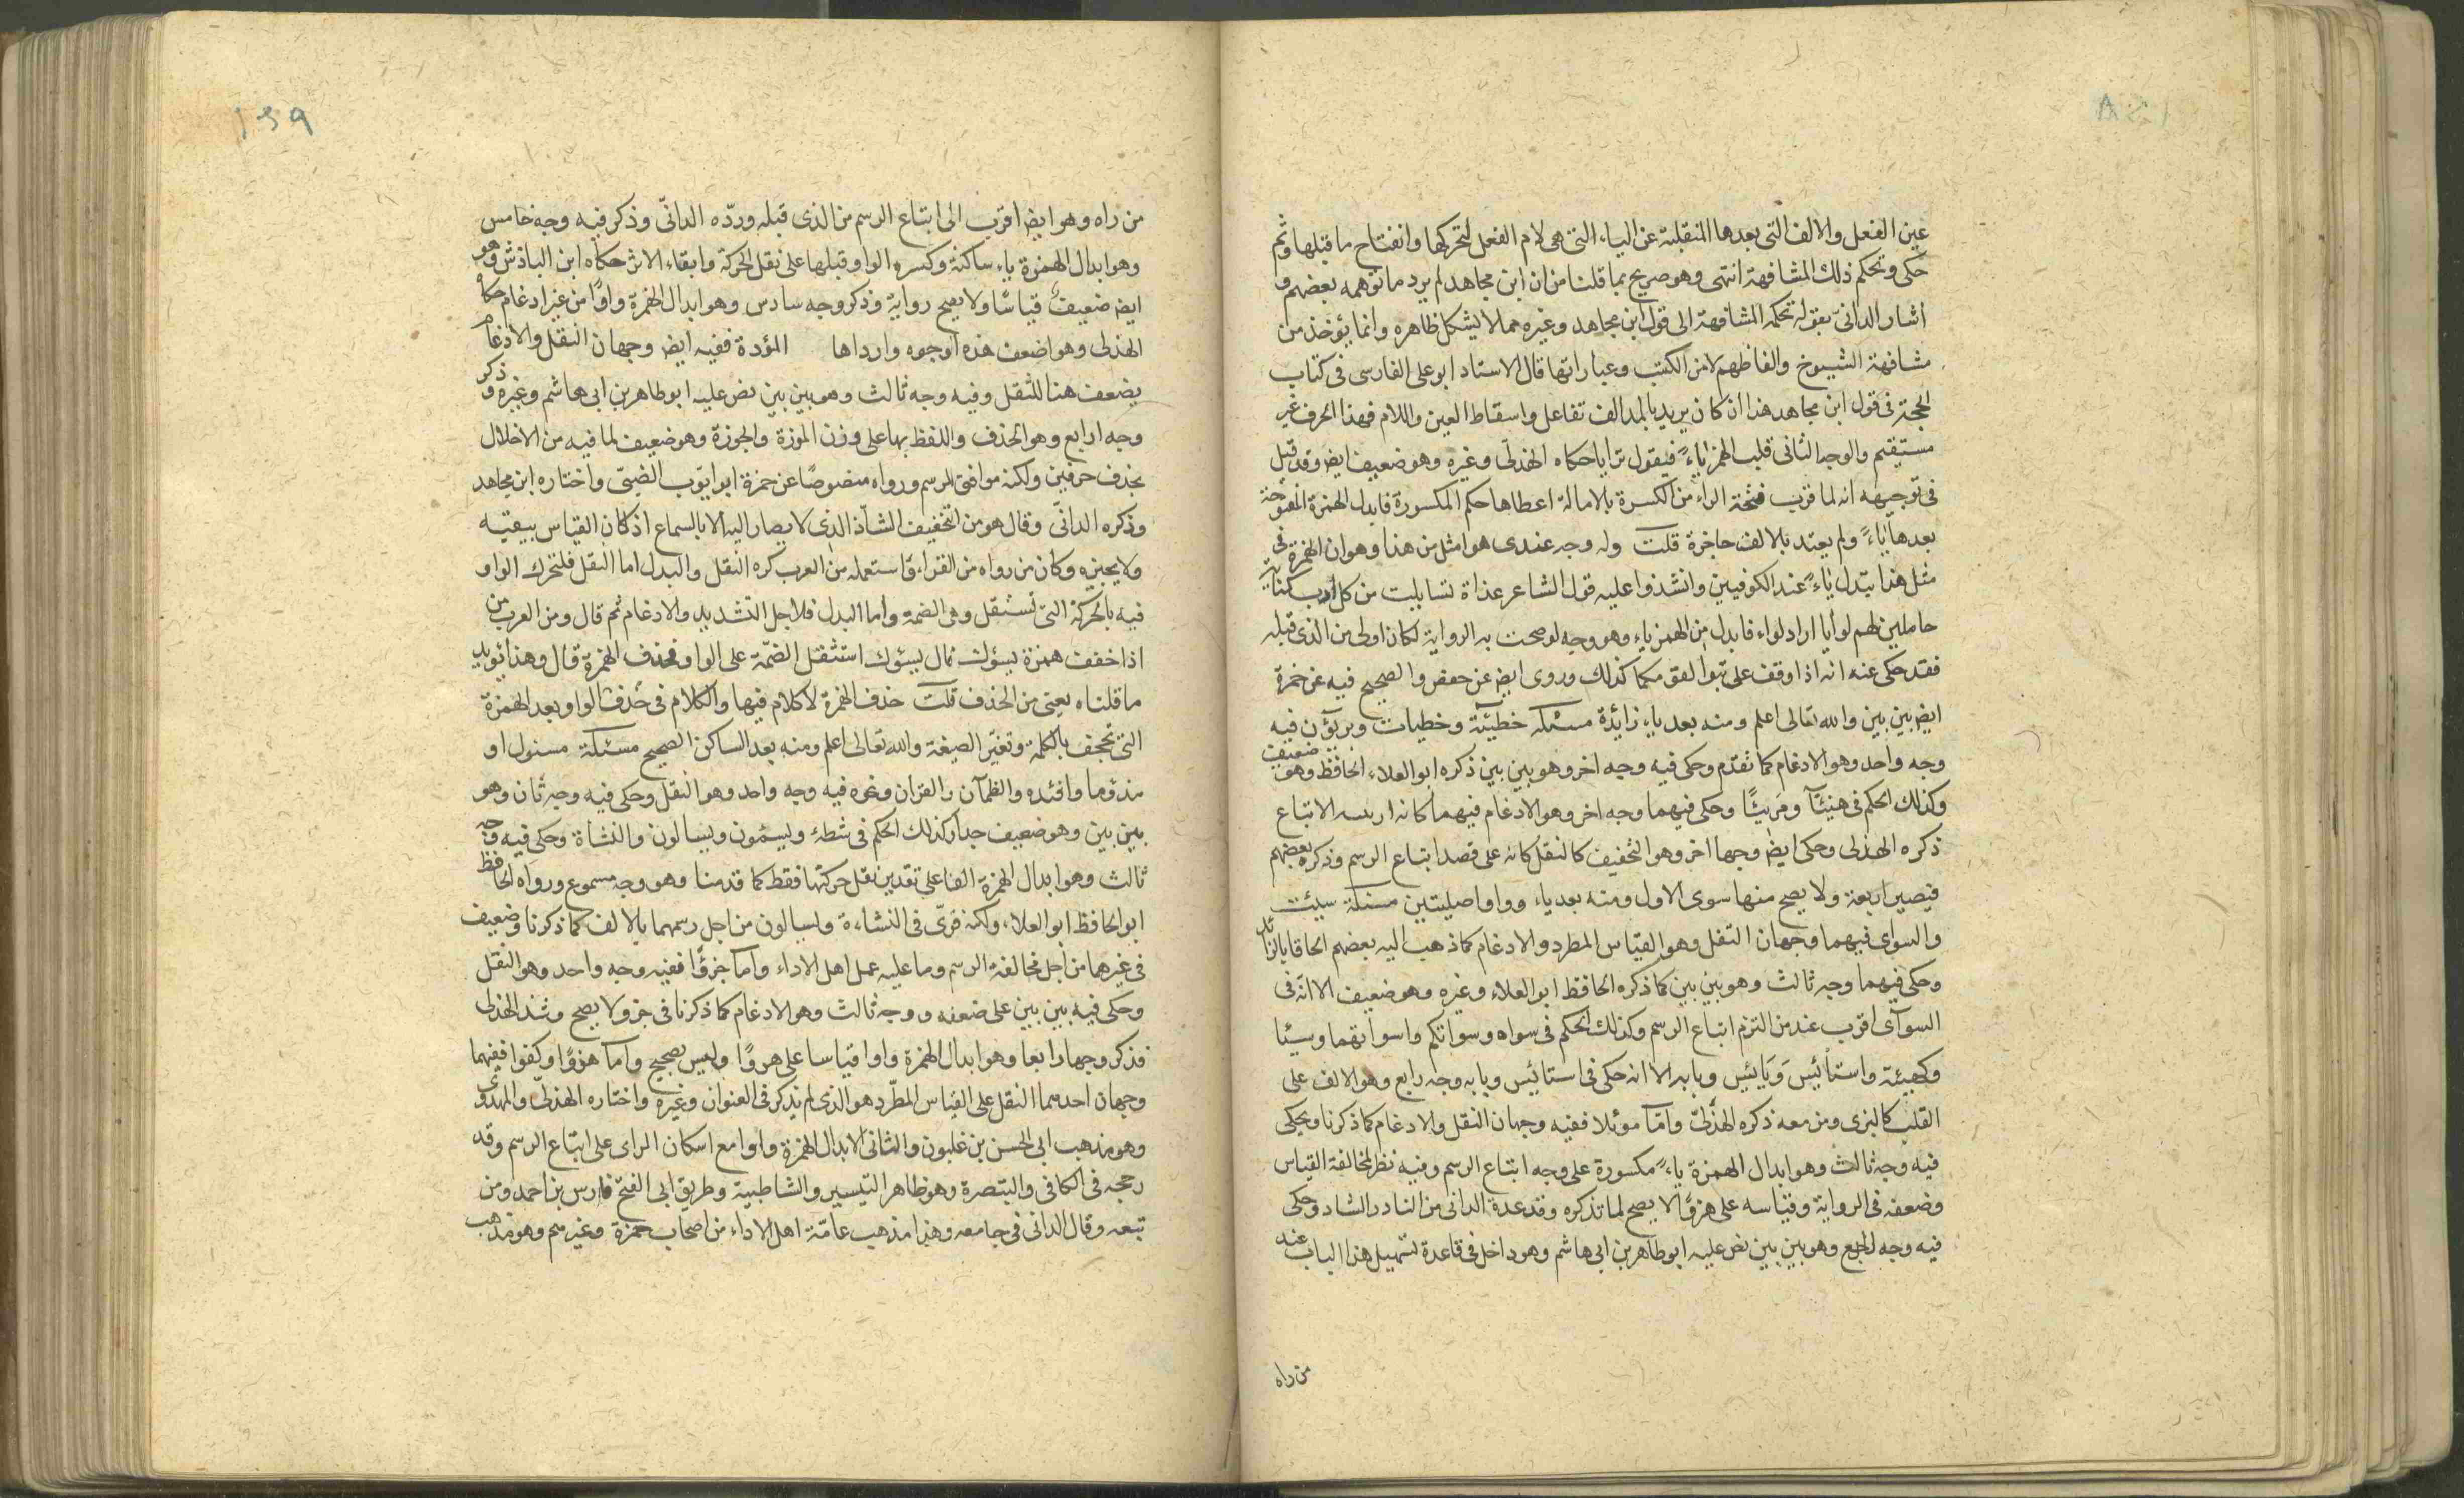 عين الفعل والالف التى بعدها المنقلبة عن الياء التى هى لام الفعل لتحركها وانفتاح ما قبلها وثم
حكى وتحكم ذلك المشافهة انتهى وهو صريح بما قلنا من ان ابن مجاهد لم يرد ما توهمه بعضهم و
اشار الدانىّ بقوله تحكمه المشافهة الى قول ابن مجاهد وغيره مما لا يشكل ظاهره وانما يؤخذ من
مشافهة الشيوخ والفاظهم لا من الكتب وعباراتها قال الاستاد ابو على الفارسى فى كتاب
الحجة فى قول ابن مجاهد هذا ان كان يريد بالمد الف تفاعل واسقاط العين واللام فهذا الحرف غير
مستيقم والوجه الثانى قلب الهمز ياءً فيقول ترايا حكاه الهذلى وغيره وهو ضعيف ايض وقد قيل
فى توجيهه انه لما قرب فتحة الراء من الكسرة بالامالة اعطاها حكم المكسورة فابدل الهمزة المفتوحة
بعدها ياءً ولم يعتد بالالف حاجزة قلت وله وجه عندى هو امثل من هذا وهو ان الهمزة فى
مثل هذا تبدل ياءً عند الكوفيين وانشدوا عليه قول الشاعر غذاة تسايلت من كل اوب كتايب
حاملين لهم لوايا اراد لواء فابدل من الهمز ياء وهو وجه لو صحت به الرواية لكان اولى من الذى قبله
فقد حكى عنه انه اذا وقف على تبوا لقومكما كذلك وروى ايض عن حفص والصحيح فيه عن حمزة
ايض بين بين والله تعالى اعلم ومنه بعد ياء زائدة مسئلة خطيئة وخطيات وبريؤن فيه
وجه واحد وهو الادغام كما تقدّم وحكى فيه وجه اخر وهو بين بين ذكره ابو العلاء الحافظ وهو ضعيف
وكذلك الحكم فى هنيئاً ومريئًا وحكى فيهما وجه اخر وهو الادغام فيهما كانه اريد به الاتباع
ذكره الهذلى وحكى ايض وجها اخر وهو التخفيف كالنقل كانه على قصد اتباع الرسم وذكره بعضهم
فيصير اربعة ولا يصح منها سوى الاول ومنه بعد ياء وواو اصليتين مسئلة سيئت
والسواى فيهما وجهان النقل وهو القياس المطرد والادغام كما ذهب اليه بعضهم الحاقا بالزائد
وحكى فيهما وجه ثالث وهو بين بين كما ذكره الحافظ ابو العلاء وغيره وهو ضعيف الا انّه فى
السوآى اقرب عند من التزم اتباع الرسم وكذلك الحكم فى سواه وسواتكم واسواتهما وسيئا
وكهيئة واستأيئس وَيَايئس وبابه الا انه حكى فى استايئس وبابه وجه رابع وهو الالف على
القلب كالبزى ومن معه ذكره الهذلىّ وامّا موئلا ففيه وجهان النقل والادغام كما ذكرنا ويحكى
فيه وجه ثالث وهو ابدال الهمزة ياءً مكسورة على وجه اتباع الرسم وفيه نظر لمخالفة القياس
وضعفه فى الرواية وقياسه على هزوًا لا يصح لما تذكره وقد عدة الدانى من النادر الشاد وحكى
فيه وجه رابع وهو بين بين نص عليه ابو طاهر بن ابى هاشم وهو داخل فى قاعدة تسهيل هذا الباب عند
من راه
من راه وهو ايض اقرب الى اتباع الرسم من الذى قبله وردّه الدانىّ وذكر فيه وجه خامس
وهو ابدال الهمزة ياء ساكنة وكسر الواو قبلها على نقل الحركة وابقاء الاثر حكاه ابن الباذش وهو
ايض ضعيف قياسًا ولا يصح رواية وذكر وجه سادس وهو ابدال الهمزة واوًا من غير ادغام حكاه
الهذلى وهو اضعف هذه الوجوه وارداها المؤدة ففيه ايض وجهان النقل والادغام
يضعف هنا للثقل وفيه وجه ثالث وهو بين بين نص عليه ابو طاهر بن ابى هاشم وغيره وذكر
وجه ارابع وهو الحذف واللفظ بها على وزن الموزة والجوزة وهو ضعيف لما فيه من الاخلال
بحذف حرفين ولكنه موافق للرسم ورواه منصوصًا عن حمزة ابو ايوّب الضبّى واختاره ابن مجاهد
وذكره الدانى وقال هو من التخفيف الشاذ الذى لا يصار اليه الا بالسماع اذ كان القياس ينفيه
ولا يجيزه وكان من رواه من القراء و استعمله من العرب كره النقل والبدل اما النقل فلتحرك الواو
فيه بالحركة التى تستثقل وهى الضمة واما البدل فلاجل التشديد والادغام ثم قال ومن العرب من
اذا خفف همزة يسؤك قال يسؤك استثقل الضمّة على الواو فحذف الهمزة قال وهذا يؤيد
ما قلناه يعنى من الحذف قلت حذف الهمزة لا كلام فيها والكلام فى حذف الواو بعد الهمزة
التى تجحف بالكلمة وتغيّر الصيغة والله تعالى اعلم ومنه بعد الساكن الصحيح مسئلة مسئول او
مذؤما وافئده والظمآن والقران ونحوه فيه وجه واحد وهو النقل وحكى فيه وجه ثان وهو
بين بين وهو ضعيف جدا وكذلك الحكم فى شطئه وليسئمون ويسالون والنشاة وحكى فيه وجه
ثالث وهو ابدال الهمزة الفا على تقدير نقل حركتها فقط كما قدمنا وهو وجه مسموع ورواه الحافظ
ابو الحافظ ابو العلاء ولكنه قوّى فى النشاءة وليسالون من اجل رسمهما بالالف كما ذكرنا وضعيف
فى غيرهما من اجل مخالفة الرسم وما عليه عمل اهل الاداء واما جزؤًا ففيه وجه واحد وهو النقل
وحكى فيه بين بين على ضعفه ووجه ثالث وهو الادغام كما ذكرنا فى جز ولا يصح وشذ الهذلى
فذكر وجها رابعا وهو ابدال الهمزة واوا قياسا على هزوًا وليس بصحيح واما هزوًا وكفوا ففيهما
وجهان احدهما النقل على القياس المطّرد هو الذى لم يذكر فى العنوان وغيره واختاره الهذلىّ والمهدوى
وهو مذهب ابى الحسن بن غلبون والثانى الابدال الهمزة واوا مع اسكان الراى على اتباع الرسم وقد
رجحه فى الكافى والتبصرة وهو ظاهر التيسير والشاطبية وطريق ابى الفتح فارس بن احمد ومن
تبعه وقال الدانى فى جامعه وهذا مذهب عامّة اهل الاداء من اصحاب حمزة وغيرهم وهو مذهب